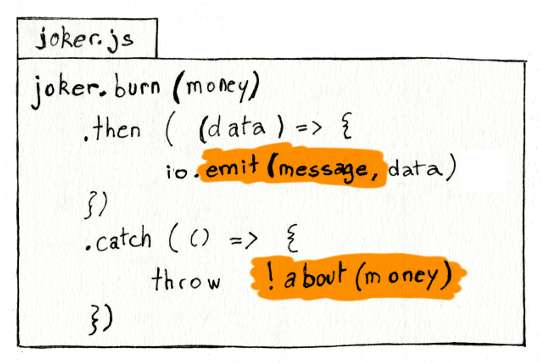 joker.js
joker.burn (money)
.then ( (data) => {
io.emit(message, data)
})
.catch ( () => {
throw !about(money)
})